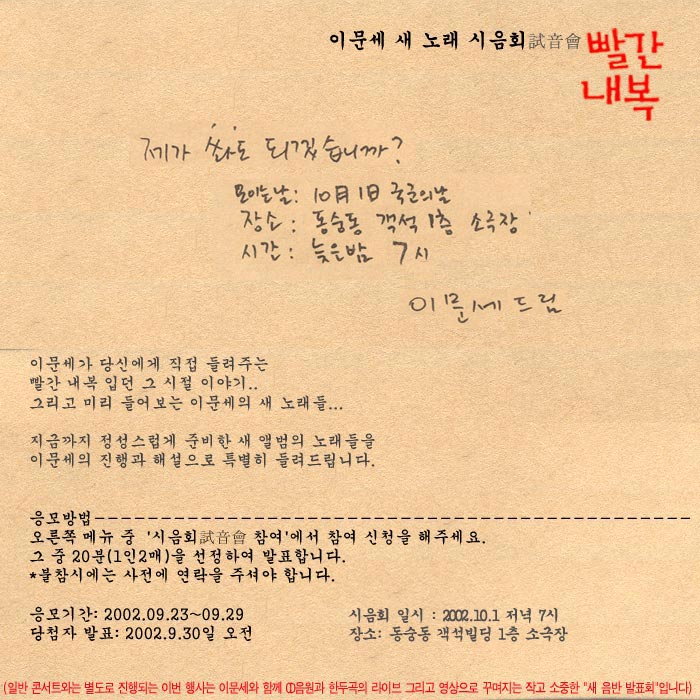 이문세 새 노래 시음회試音會
빨간
내복
제가 쏴도 되겠습니까?
모이는날: 10月 1日 국군의날
장소 : 동숭동 객석 1층 소극장
시간 : 늦은밤 7시
이문세 드림
이문세가 당신에게 직접 들려주는
빨간 내복 입던 그 시절 이야기..
그리고 미리 들어보는 이문세의 새 노래들...
지금까지 정성스럽게 준비한 새 앨범의 노래들을
이문세의 진행과 해설으로 특별히 들려드립니다.
응모방법---------------------------------------------
오른쪽 메뉴 중 '시음회試音會 참여'에서 참여 신청을 해주세요.
그 중 20분(1인2매)을 선정하여 발표합니다.
*불참시에는 사전에 연락을 주셔야 합니다.
응모기간: 2002.09.23~09.29
당첨자 발표: 2002.9.30일 오전
시음회 일시 : 2002.10.1 저녁 7시
장소: 동숭동 객석빌딩 1층 소극장
(일반 콘서트와는 별도로 진행되는 이번 행사는 이문세와 함께 ①음원과 한두곡의 라이브 그리고 영상으로 꾸며지는 작고 소중한 "새 음반 발표회"입니다)